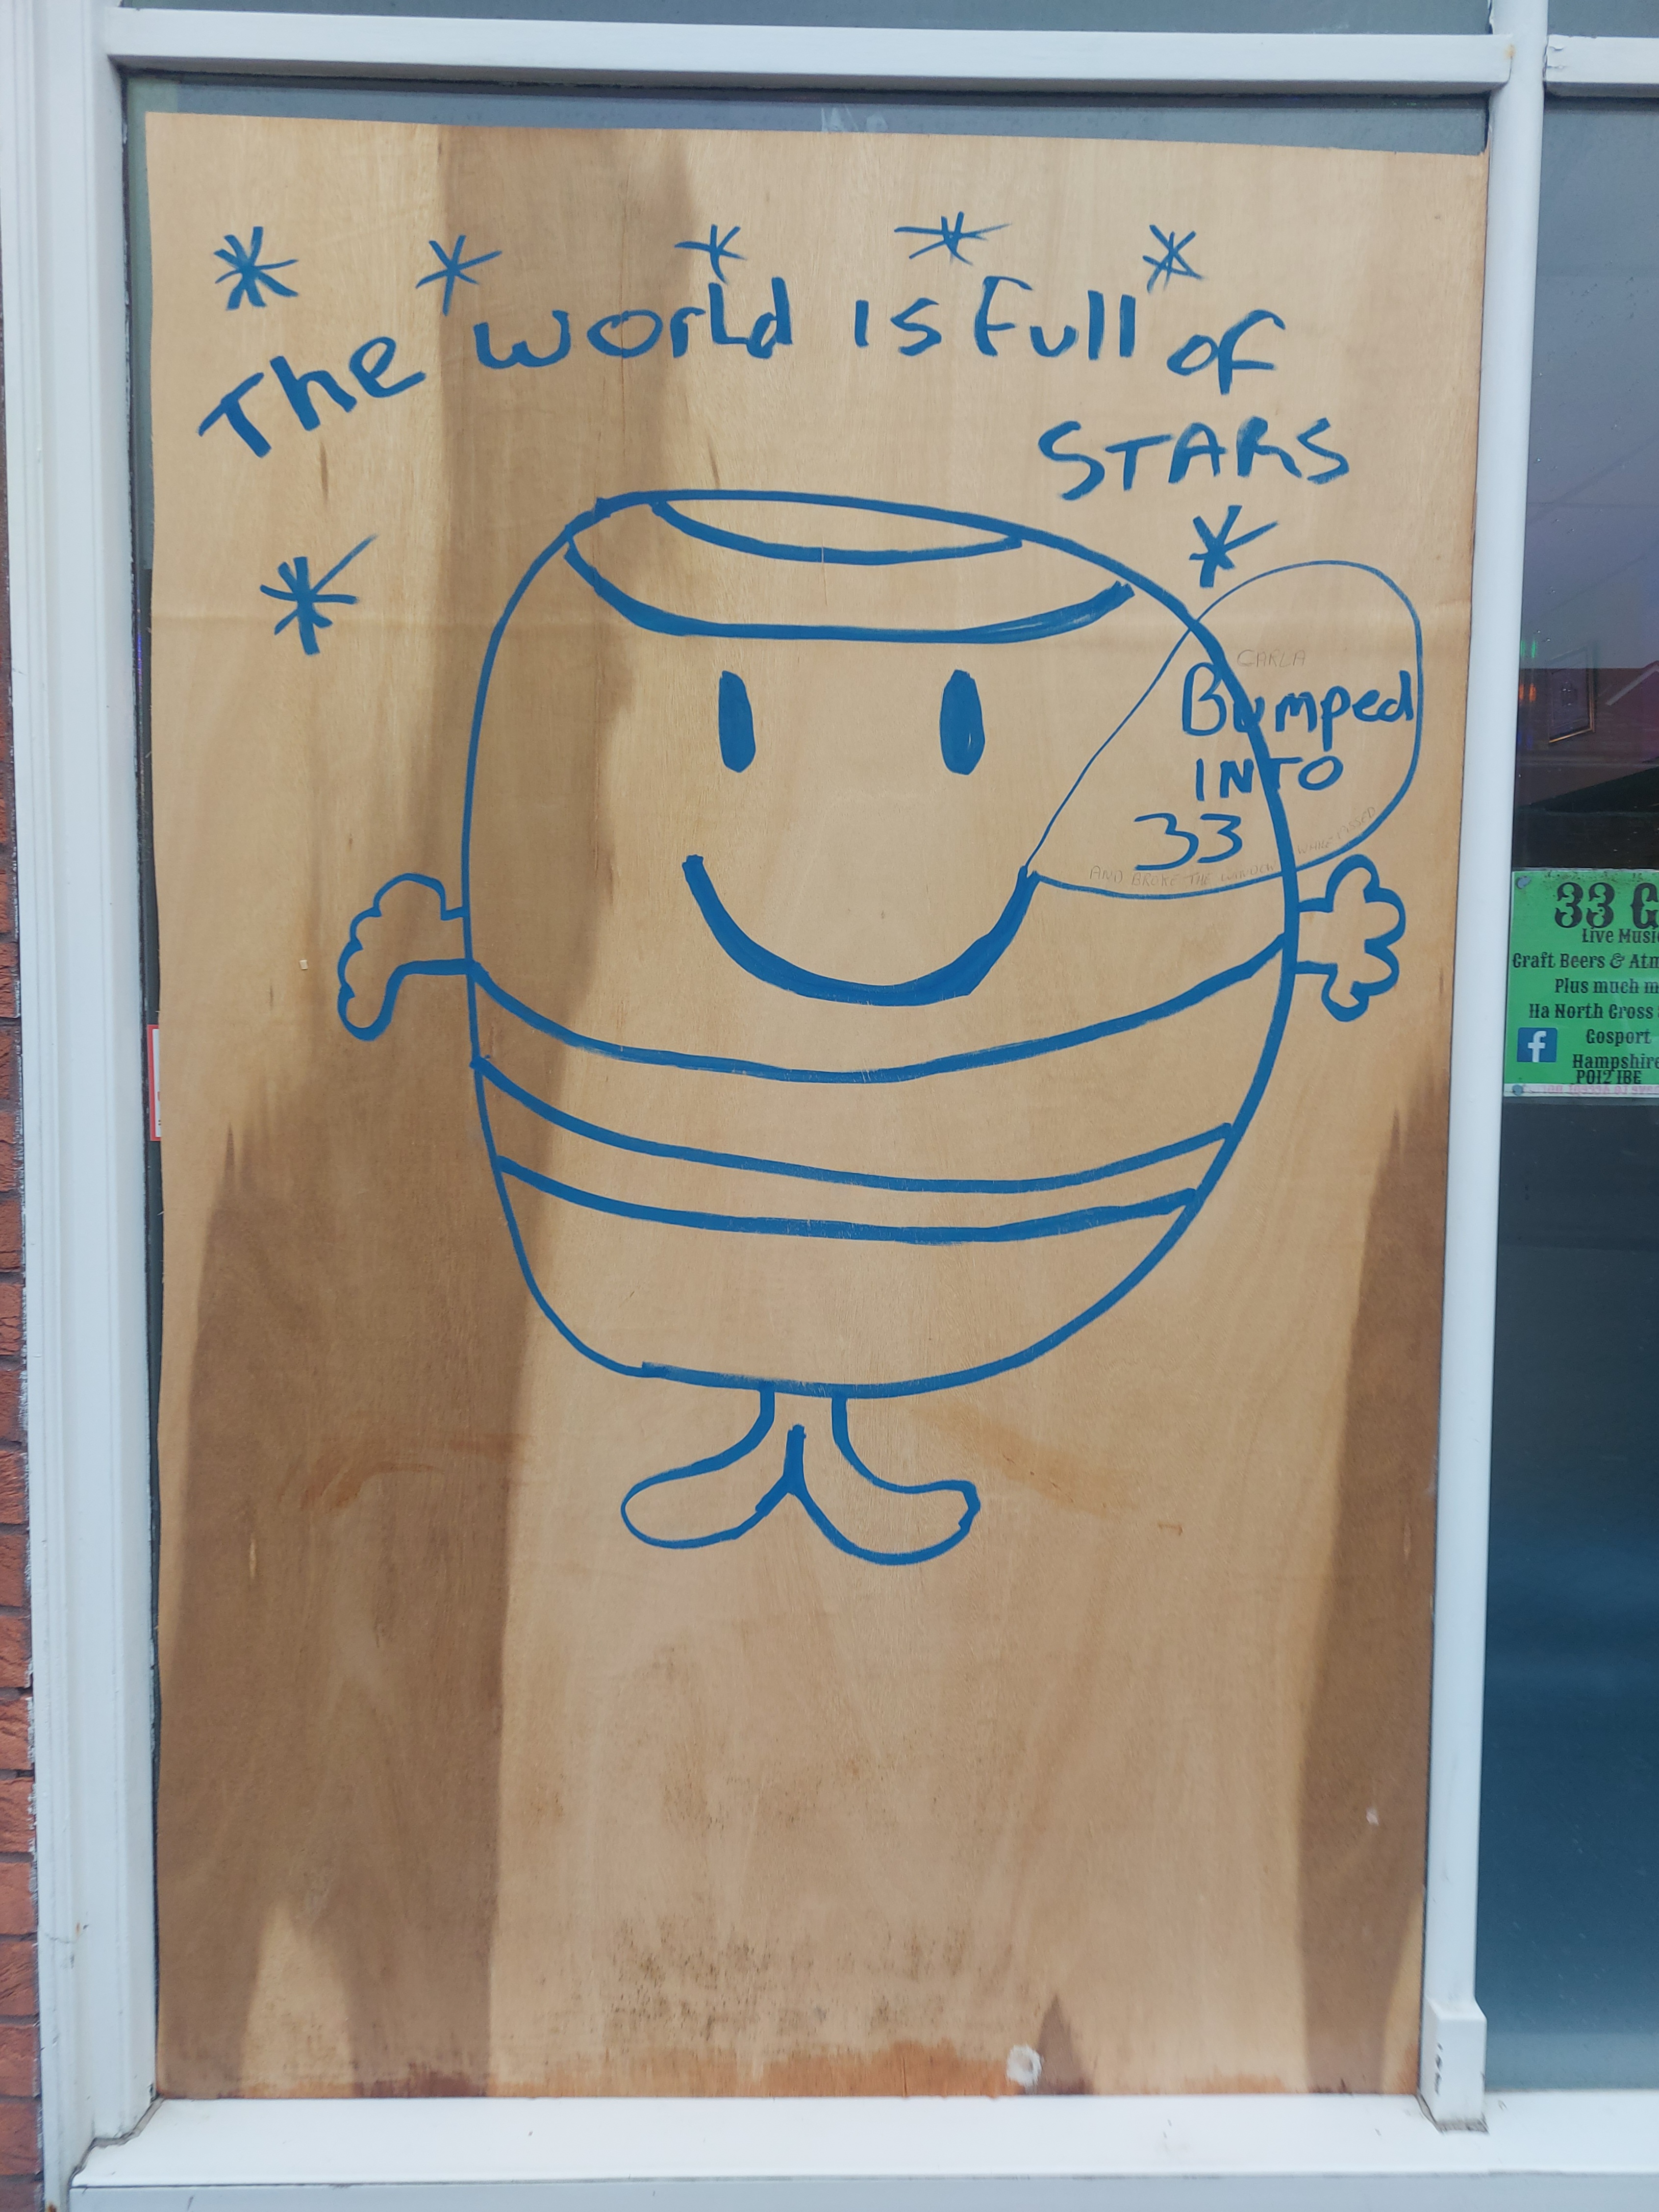 The world is Full of
STARS
CARLA
Bumped
INTO
33
AND BROKE THE WINDOW WHILE PISSED
33 G
Live Musi
Craft Beers & Atm
Plus much m
Ha North Cross
Gosport
Hampshire
PO12 1BE